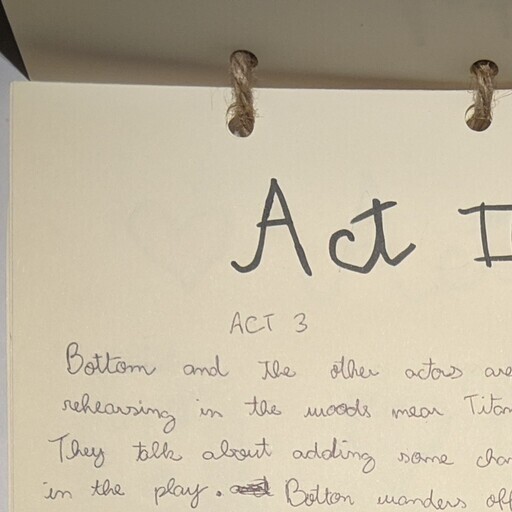 Act I
ACT 3
Bottom and the other actors are
rehearsing in the woods near Titan
They talk about adding some cha
in the play. Botton wanders off